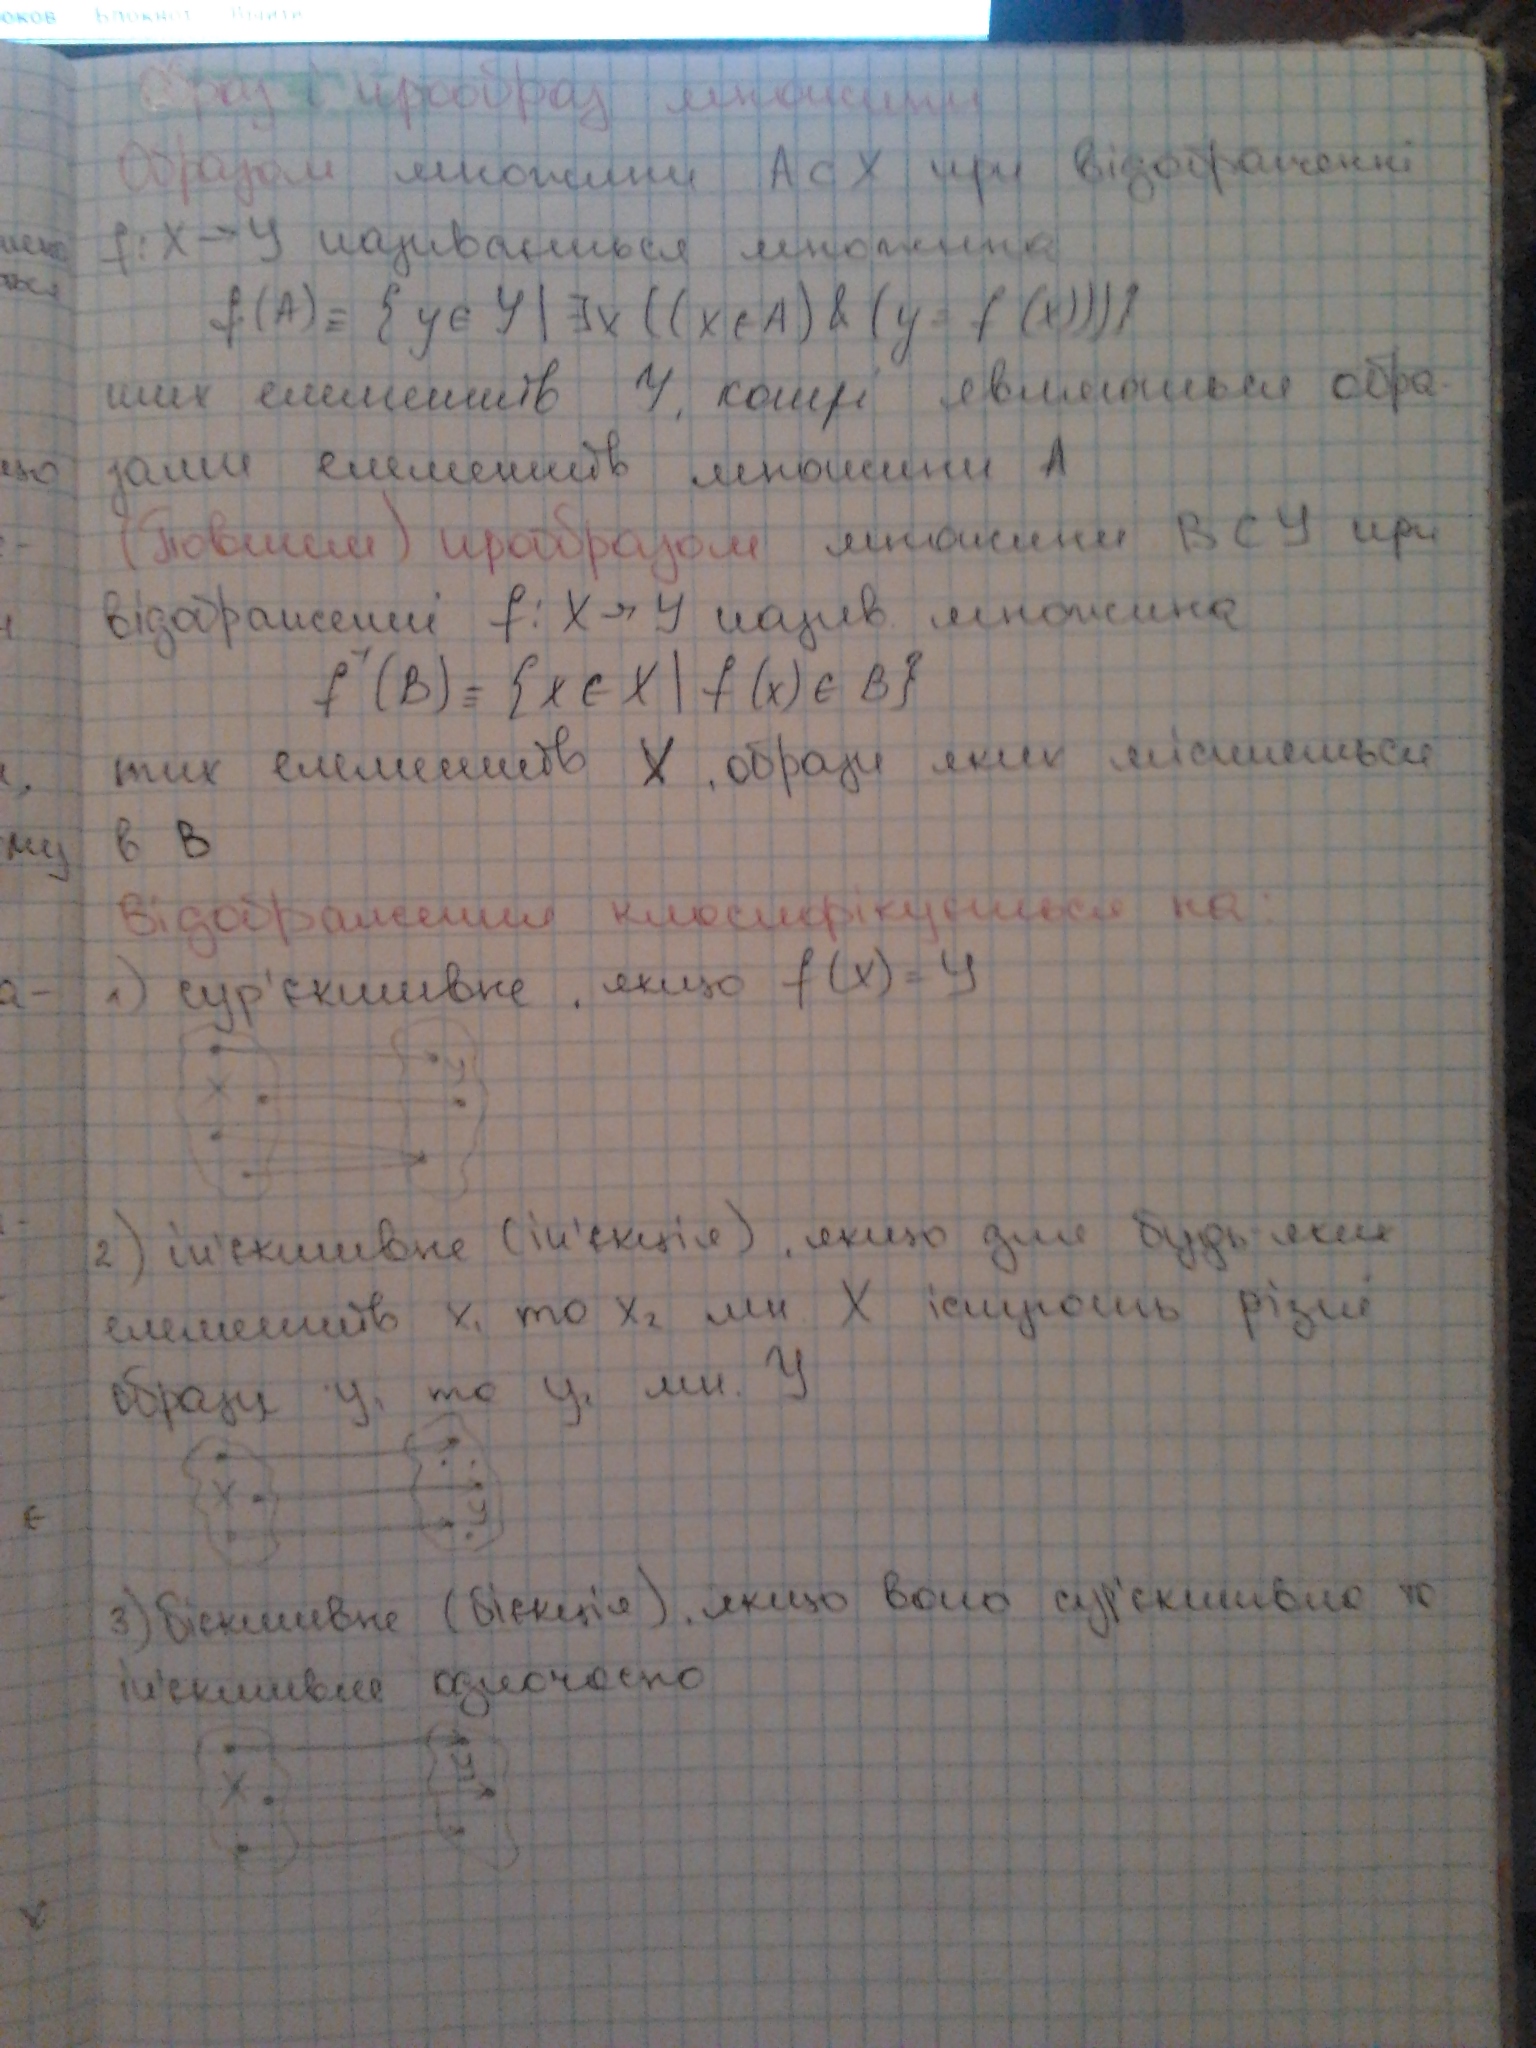 Образ і прообраз множини
Образом множини A⊂X при відображенні
f: X→Y називається множина
f(A)≡{y∈Y|∃x((x∈A)&(y=f(x)))}
тих елементів Y, котрі являються обра-
зами елементів множини A
(Повним) прообразом множини B⊂Y при
відображенні f: X→Y назив. множина
f⁻¹(B)≡{x∈X|f(x)∈B}
тих елементів X, образи яких містяться
в B
Відображення класифікується на:
1) сур'єктивне, якщо f(X)=Y
X Y
2) ін'єктивне (ін'єкція), якщо для будь-яких
елементів x₁ та x₂ мн. X існують різні
образи y₁ та y₂ мн. Y
X Y
3) бієктивне (бієкція), якщо воно сур'єктивно та
ін'єктивне одночасно
X Y